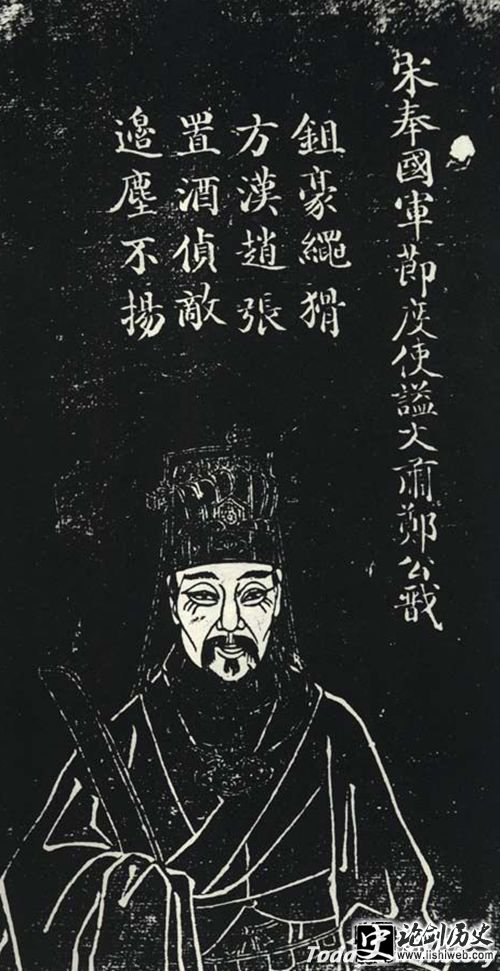 宋奉國軍節度使謚文肅鄭公戩
鉏豪繩猾
方漢趙張
置酒偵敵
邊塵不揚
史 论剑历史
www.lishiweb.com